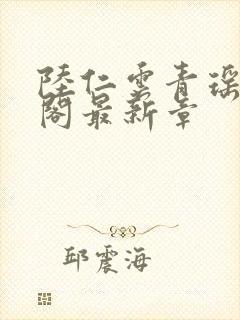 陸仁雲青瑶
閣最新章
邱震海